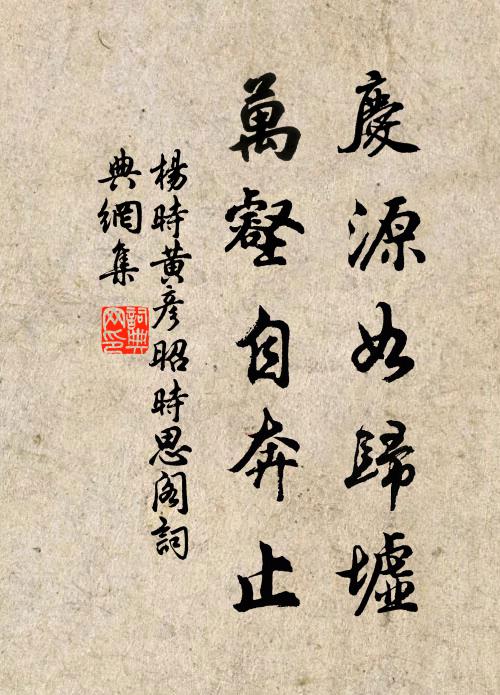 慶源如歸墟
萬壑自奔止
楊時黃彥昭時思閣詞
典網集
詞典
网印